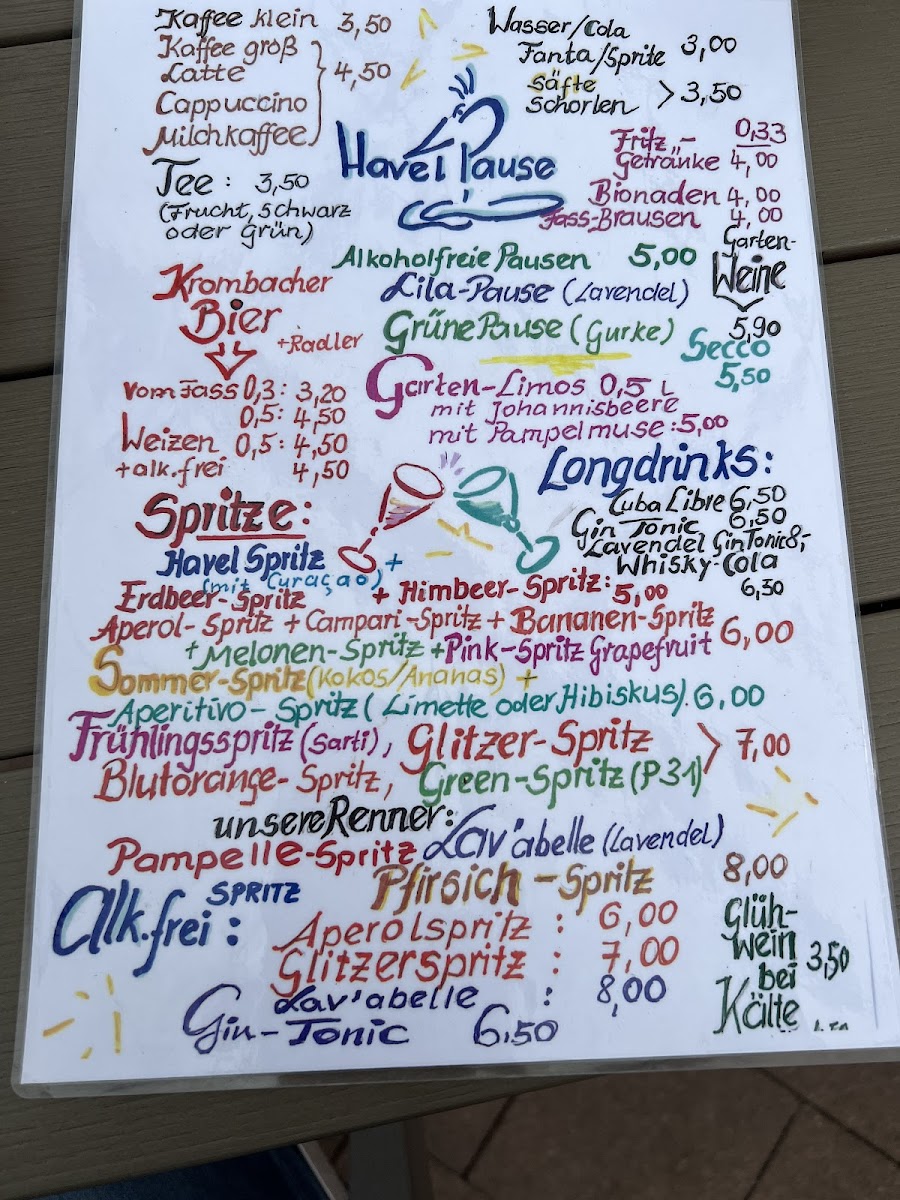 Kaffee klein 3,50
Kaffee groß
Latte
Cappuccino
Milchkaffee
4,50
Tee: 3,50
(Frucht, Schwarz
oder grün)
Wasser/Cola
Fanta/Sprite 3,00
Säfte
Schorlen > 3,50
Havel Pause
Fritz „- 0,33
Getränke 4,00
Bionaden 4,00
Fass-Brausen 4,00
Garten-
Weine
5,90
Secco
5,50
Alkoholfreie Pausen 5,00
Lila-Pause (Lavendel)
Grüne Pause (Gurke)
Krombacher
Bier
+Radler
vom Fass 0,3: 3,20
0,5: 4,50
Weizen 0,5: 4,50
+alk.frei 4,50
Garten-Limos 0,5 L
mit Johannisbeere
mit Pampelmuse: 5,00
Longdrinks:
Cuba Libre 6,50
Gin Tonic 6,50
Lavendel GinTonic &-
Whisky-Cola
6,50
Spritze:
Havel Spritz +
(mit Curaçao)
Erdbeer-Spritz + Himbeer-Spritz: 5,00
Aperol-Spritz + Campari-Spritz + Bananen-Spritz
+ Melonen-Spritz + Pink-Spritz Grapefruit 6,00
Sommer-Spritz (Kokos/Ananas) +
Aperitivo-Spritz (Limette oder Hibiskus). 6,00
Frühlingsspritz (Sarti), Glitzer-Spritz
Blutorange-Spritz, Green-Spritz (P31)
> 7,00
unsere Renner:
Pampelle-Spritz Lav'abelle (Lavendel)
Pfirsich-Spritz 8,00
Alk.frei: SPRITZ
Aperolspritz : 6,00
Glitzerspritz : 7,00
Lav'abelle : 8,00
Gin-Tonic 6,50
Glüh-
wein 3,50
bei
Kälte